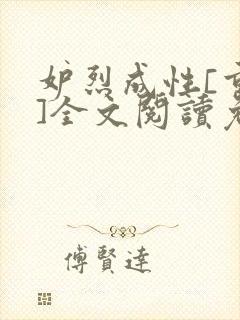 妒烈成性[重
]全文閱讀免
傅賢達